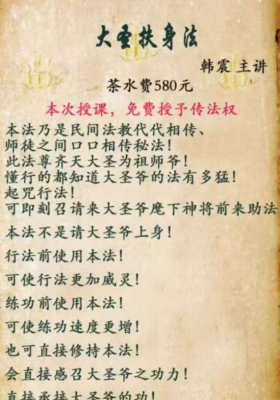 大圣扶身法
韩震 主讲
茶水费580元
本次授课，免费授予传法权
本法乃是民间法教代代相传、
师徒之间口口相传秘法！
此法尊齐天大圣为祖师爷！
懂行的都知道大圣爷的法有多猛！
起咒行法！
可即刻召请来大圣爷麾下神将前来助法
本法不是请大圣爷上身！
行法前使用本法！
可使行法更加威灵！
练功前使用本法！
可使练功速度更增！
也可直接修持本法！
会直接感召大圣爷之功力！
直接承接大圣爷的功！